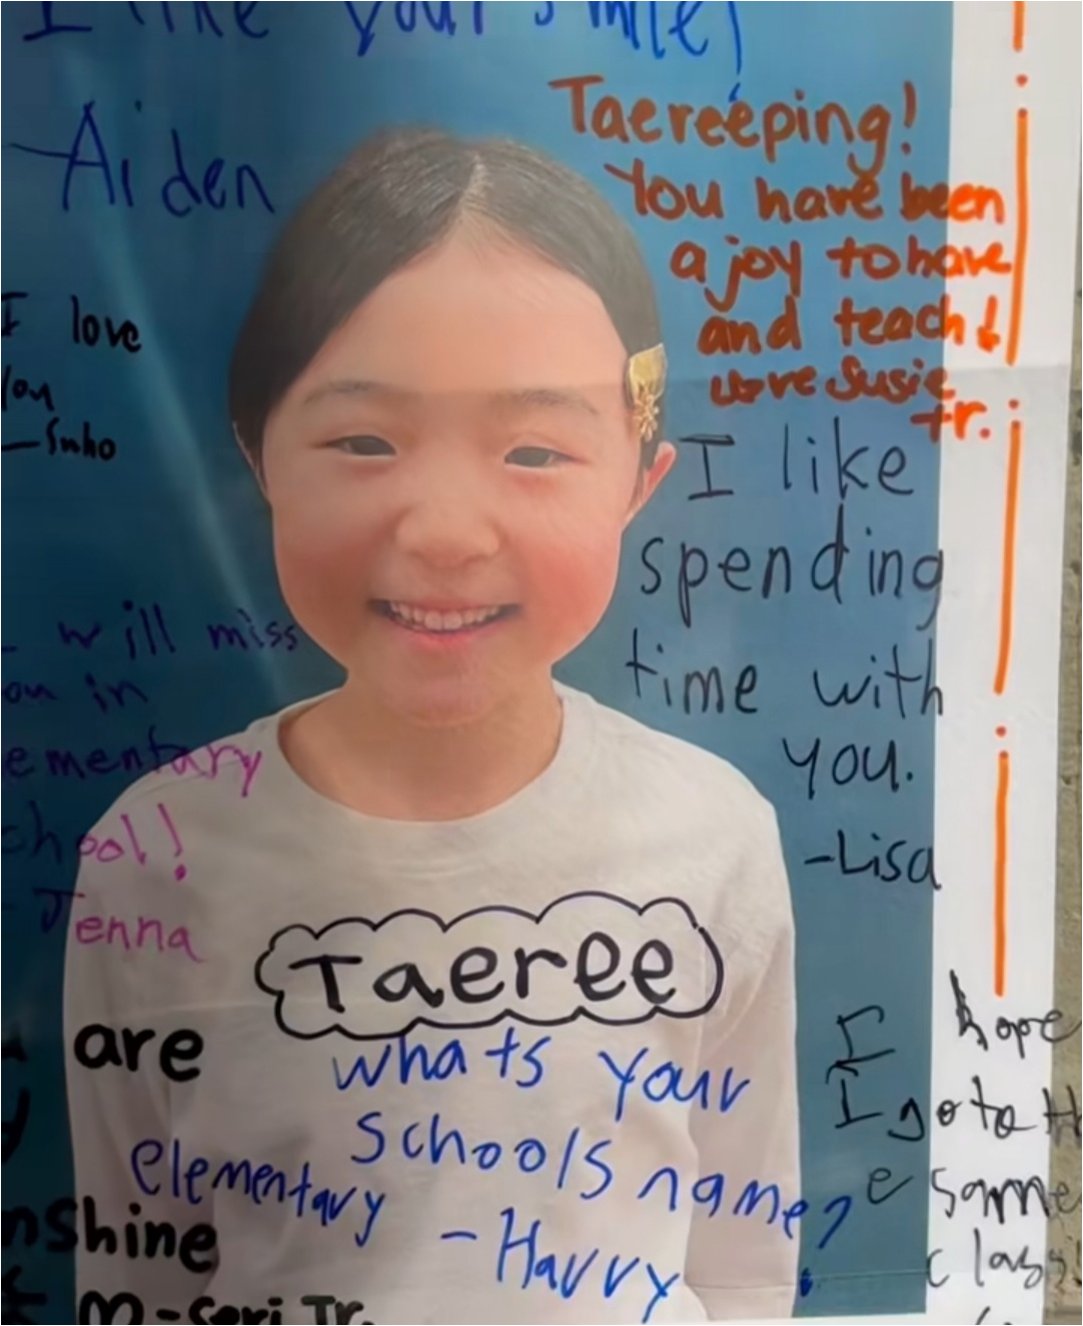 I like your smile!
Aiden
Taereeping!
You have been
a joy to have
and teach!
Love Susie
tr.
I love
you
—Suho
I like
spending
time with
you.
-Lisa
will miss
in
ementary
chool!
Jenna
Taeree
are
nshine
m-Seri Tr.
whats your
schools name?
elementary
-Harry
I hope
I go to th
e same
class!